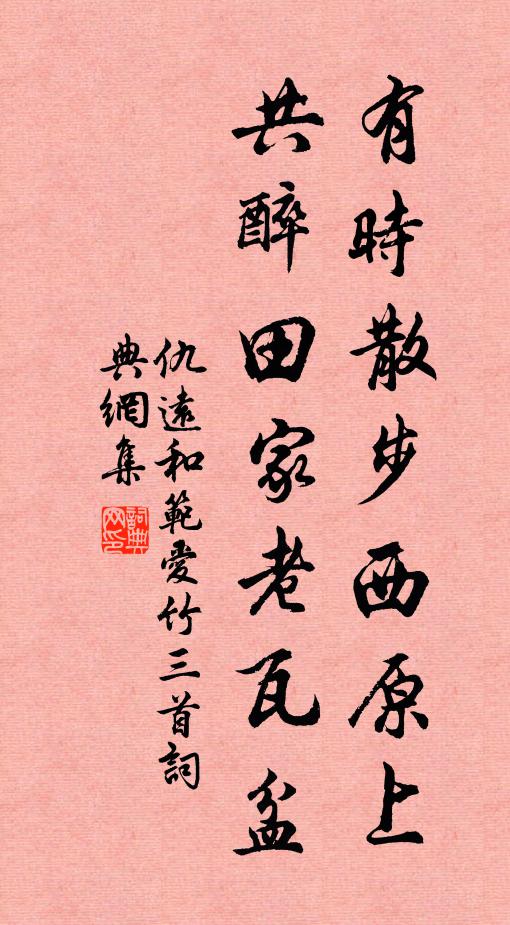 有時散步西原上
共醉田家老瓦盆
仇遠和範愛竹三首詞
典網集
詞典网印